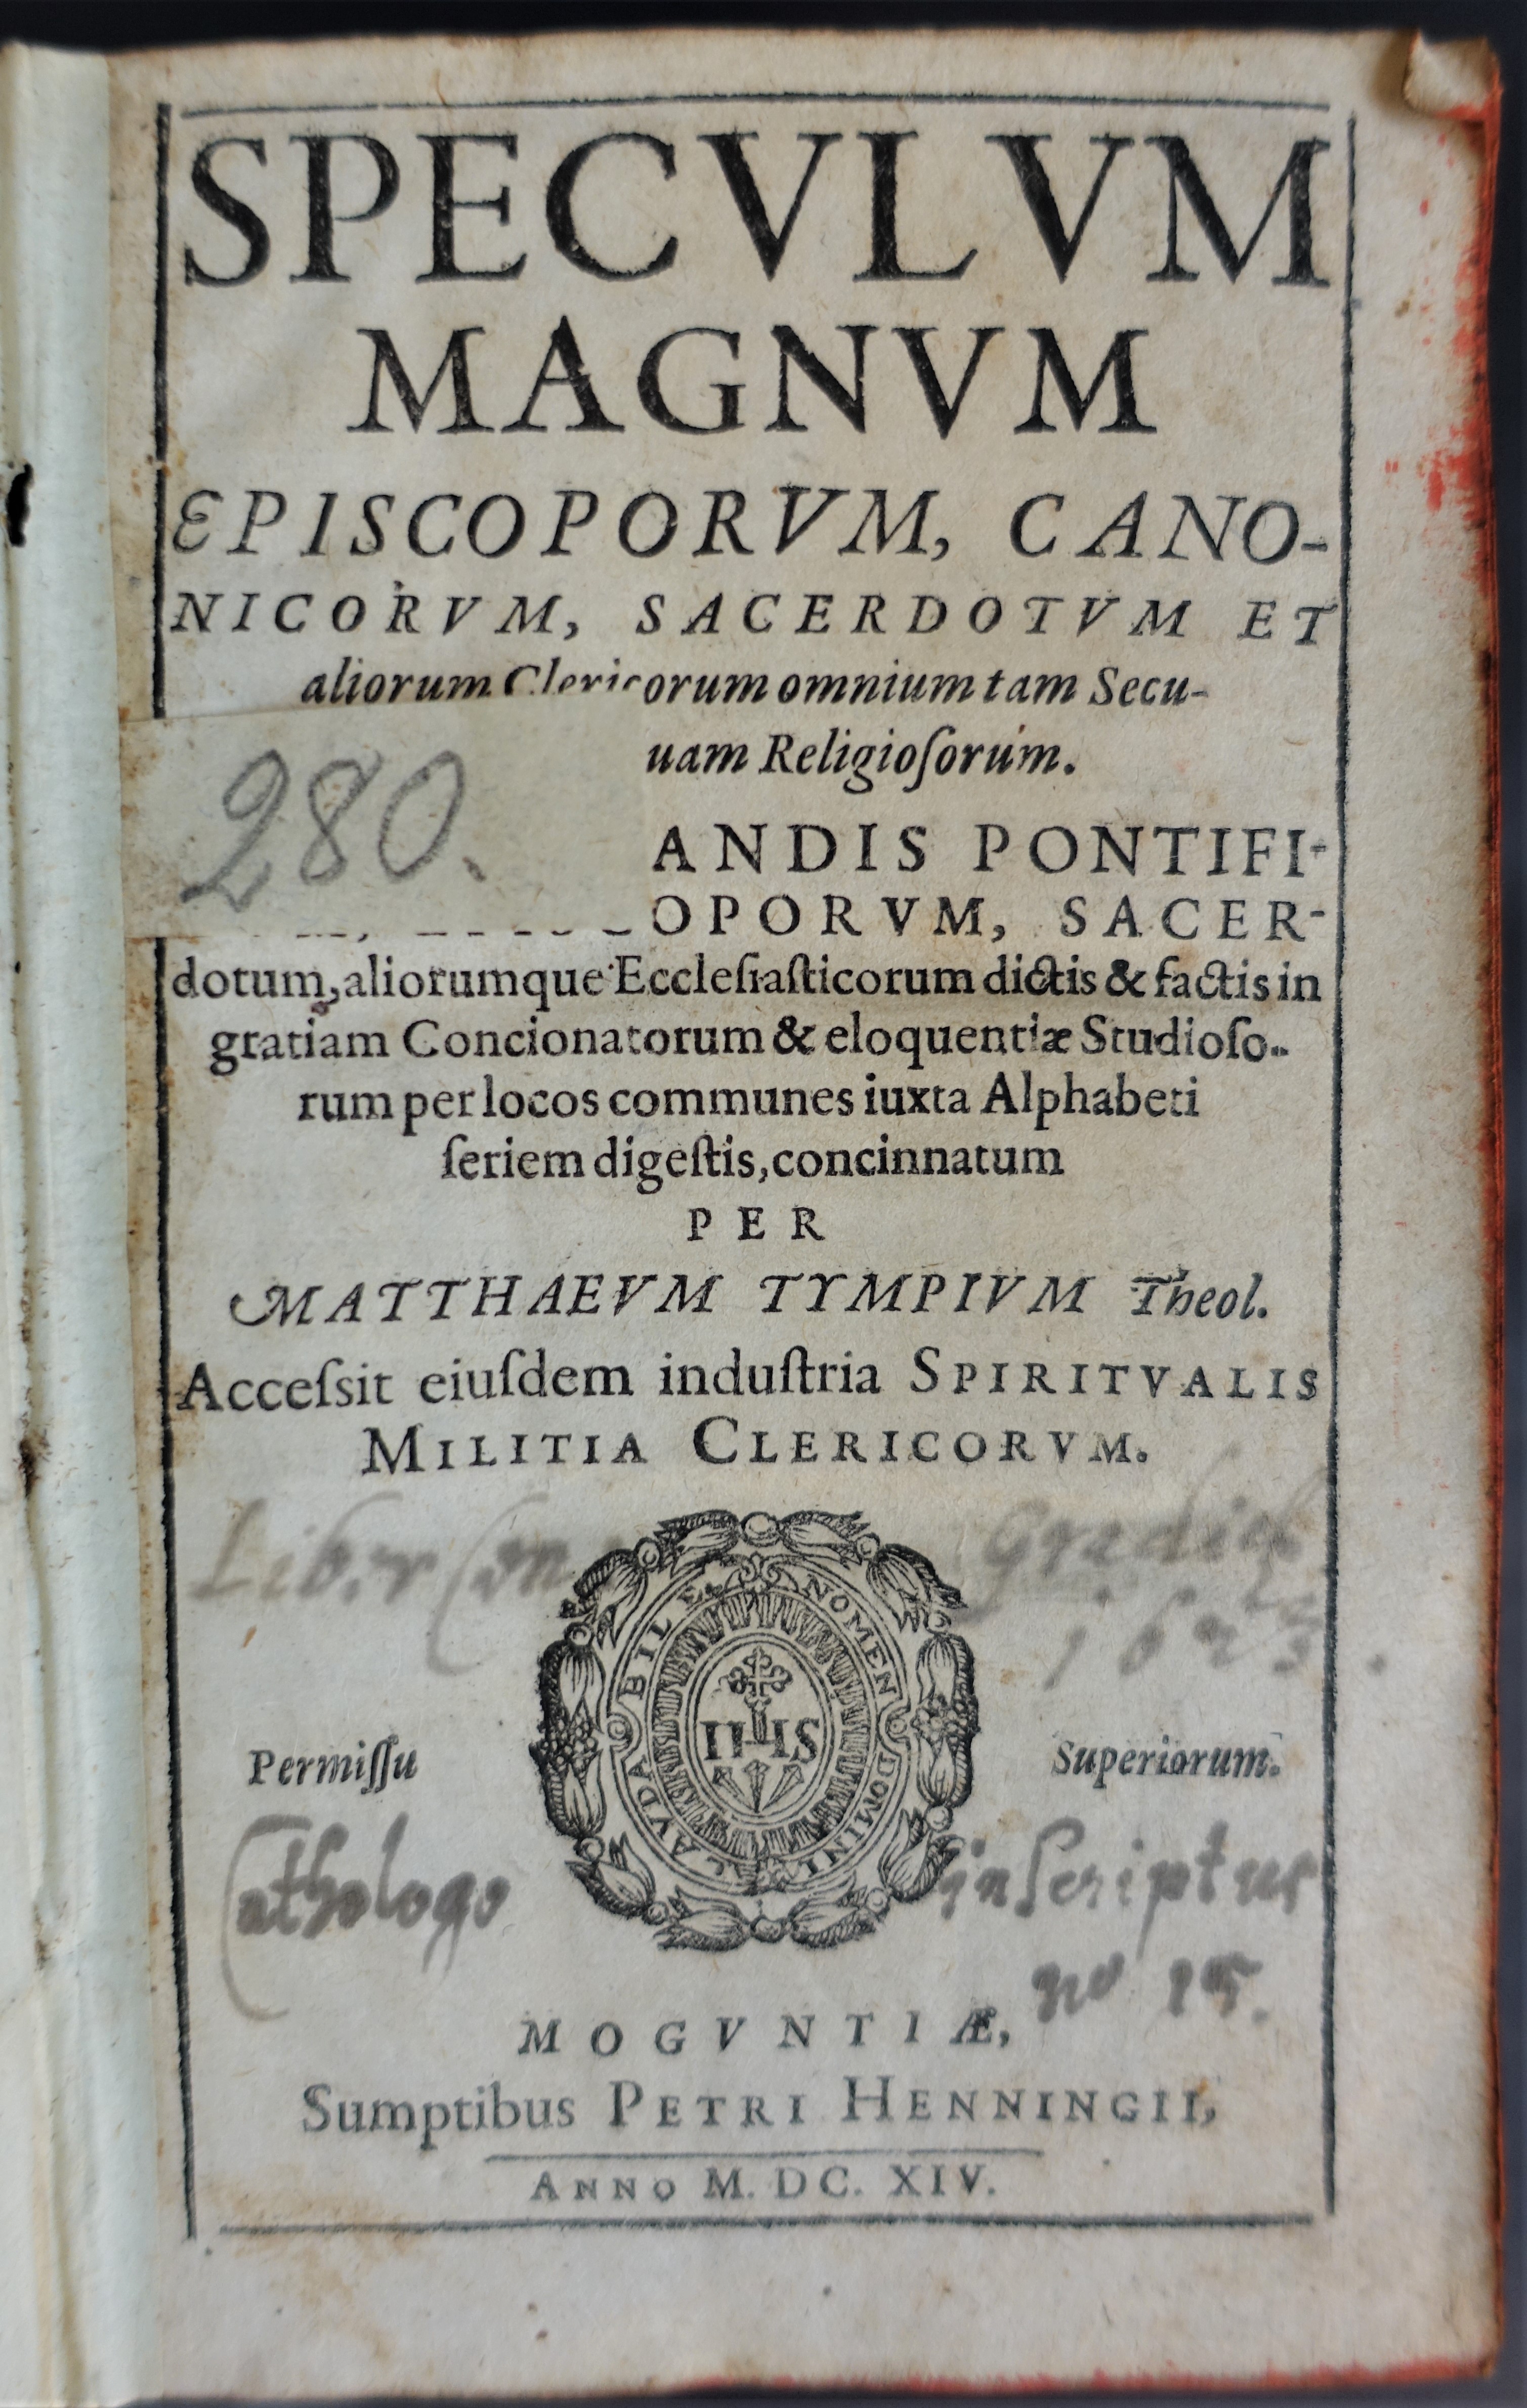 SPECVLVM
MAGNVM
EPISCOPORVM, CANO-
NICORVM, SACERDOTVM ET
aliorum Clericorum omnium tam Secu-
uam Religioſorum.
280.
ANDIS PONTIFI-
OPORVM, SACER-
dotum, aliorumque Eccleſiaſticorum dictis & factis in
gratiam Concionatorum & eloquentiæ Studioſo-
rum per locos communes iuxta Alphabeti
ſeriem digeſtis, concinnatum
PER
MATTHAEVM TYMPIVM Theol.
Acceſsit eiuſdem induſtria SPIRITVALIS
MILITIA CLERICORVM.
Liber Con
LAVDABILE NOMEN DOMINI
IHS
Permiſſu Superiorum.
Cathologo inscriptus
no 15.
MOGVNTIÆ,
Sumptibus PETRI HENNINGII,
ANNO M. DC. XIV.